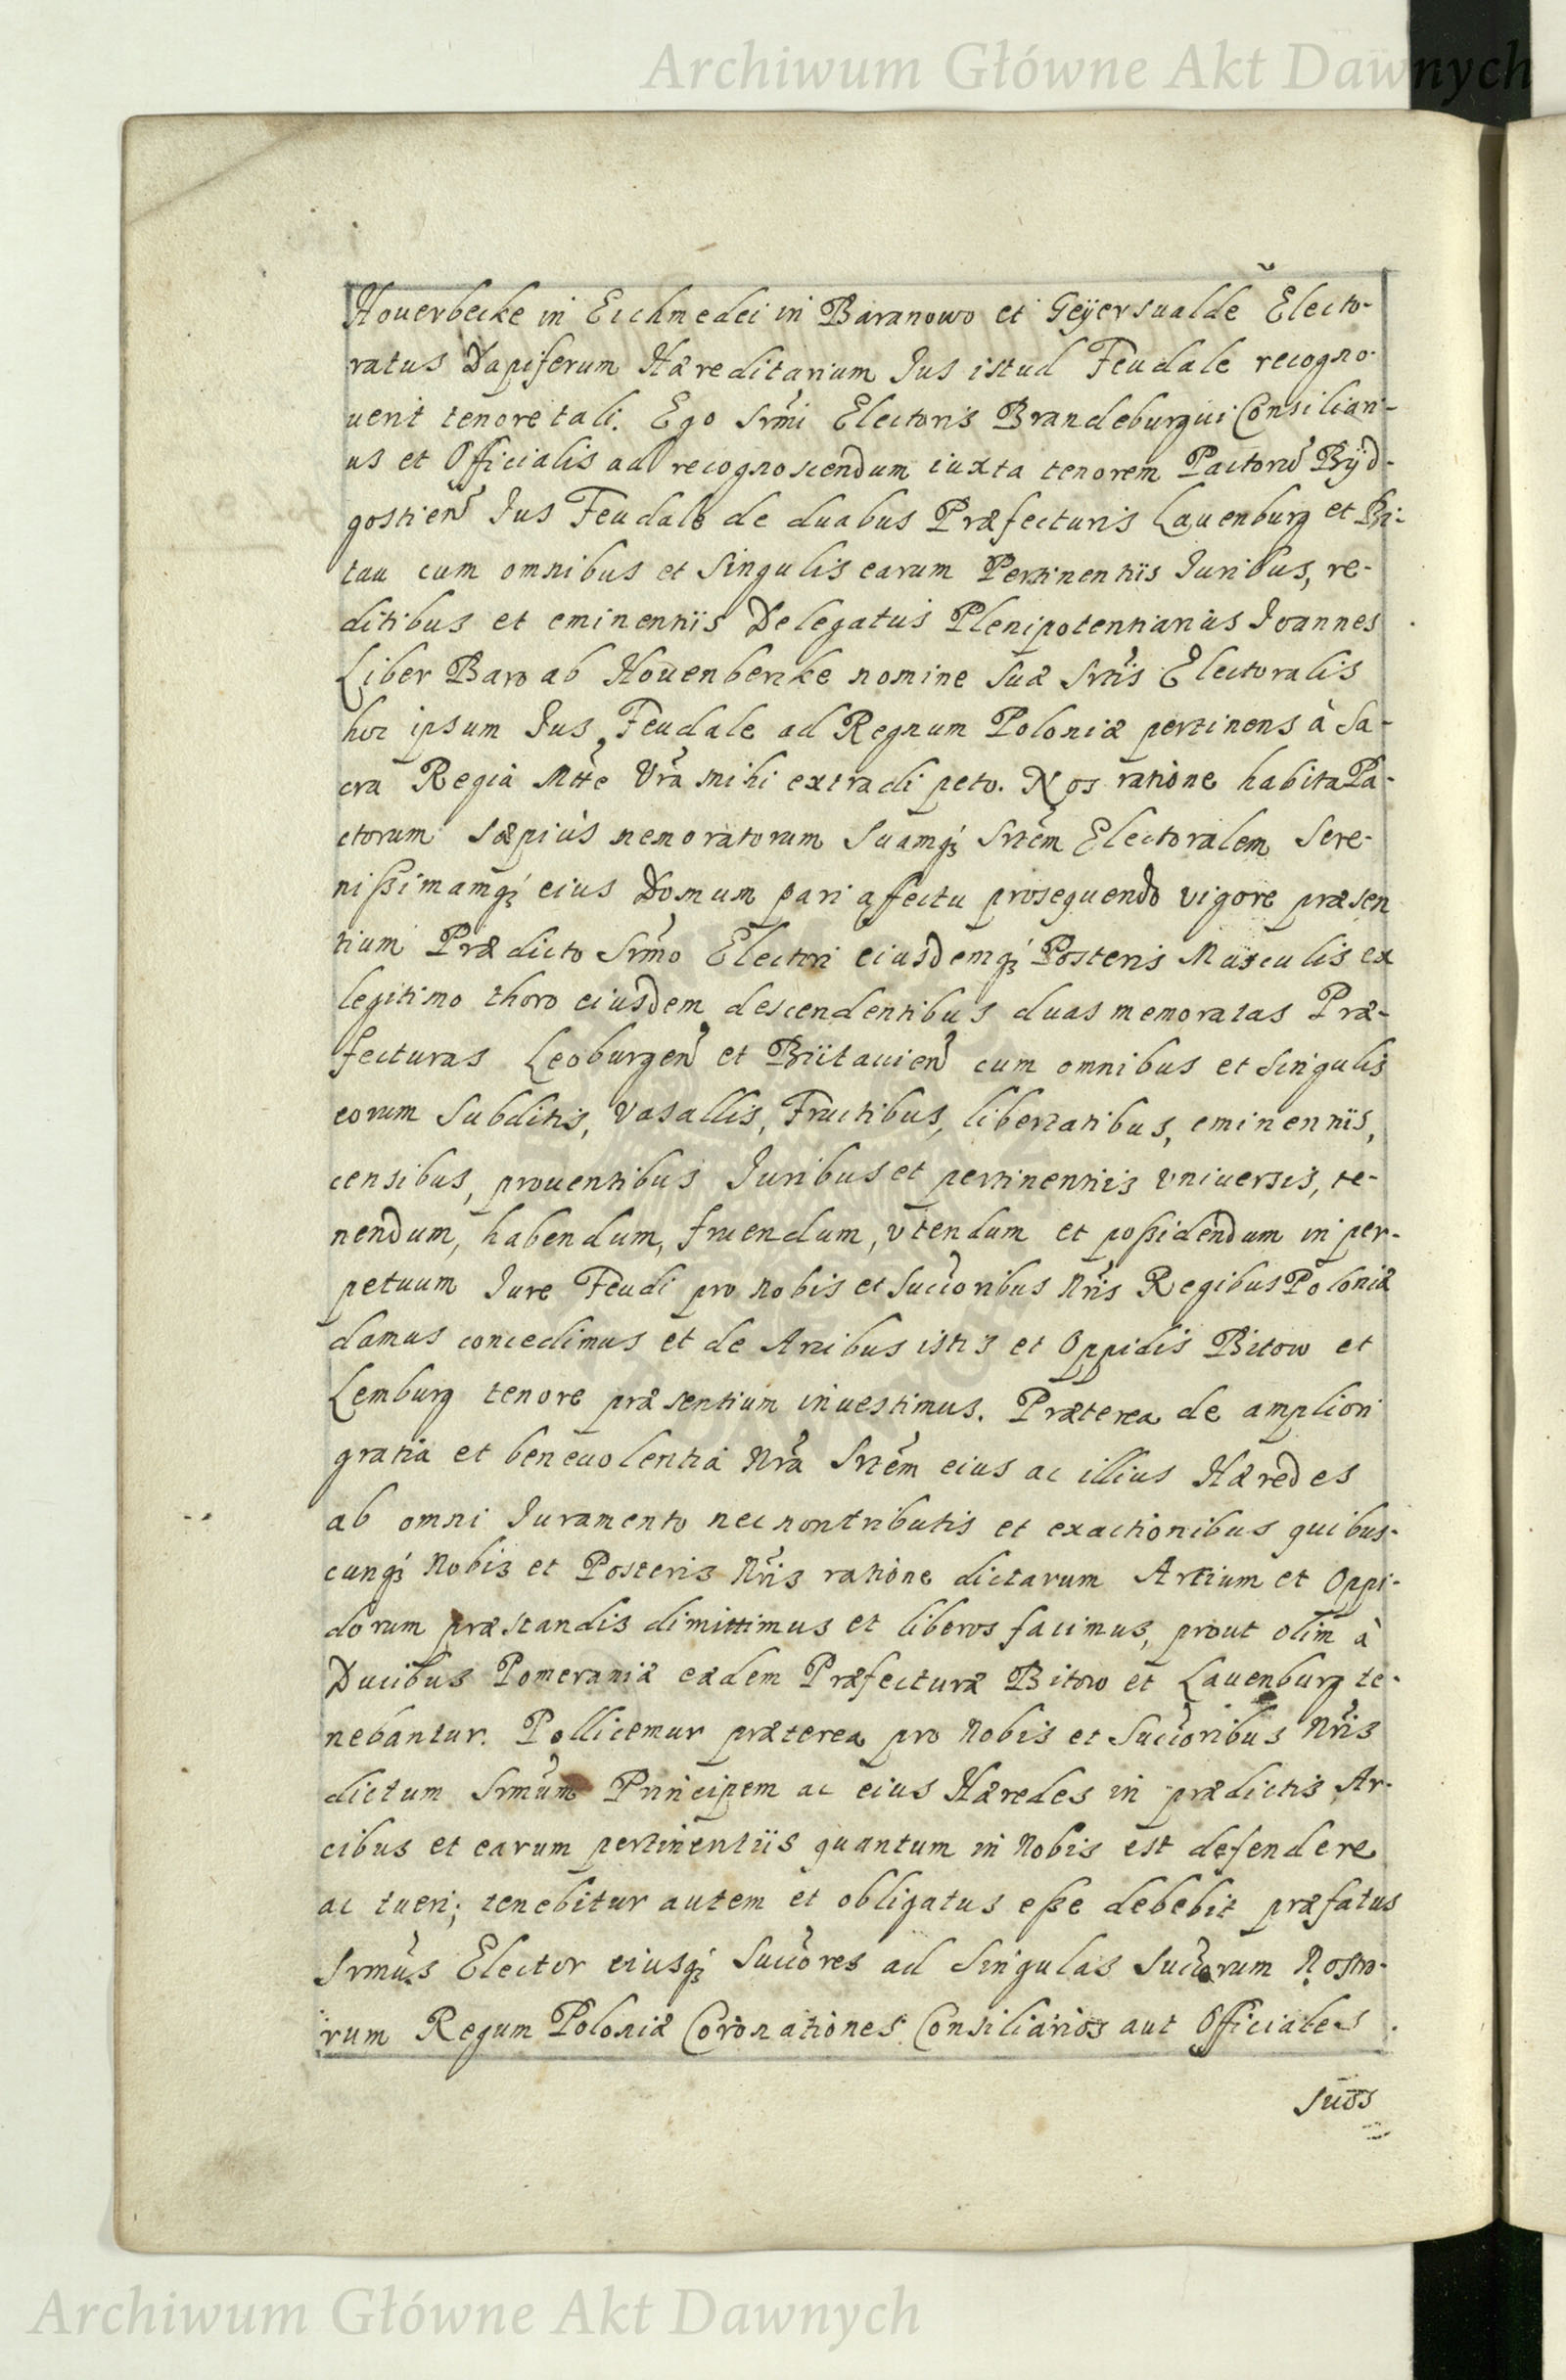 Archiwum Główne Akt Dawnych
Houerbecke in Eichmedei in Baranowo et Geÿersualde Electo-
ratus Dapiferum Hæreditarium Jus istud Feudale recogno-
uerit tenore tali. Ego Srm̃i Electoris Brandeburgici Consiliari-
us et Officialis ad recognoscendum iuxta tenorem Pactorũ Bÿd-
gostien̄ Jus Feudale de duabus Præfecturis Lauenburg et Bi-
tau cum omnibus et singulis earum Pertinentiis Juribus, re-
ditibus et eminentiis Delegatus Plenipotentiarius Joannes
Liber Baro ab Houenbercke nomine suæ Srt̃is Electoralis
hoc ipsum Jus Feudale ad Regnum Poloniæ pertinens à Sa-
cra Regia Mtt̃e Vr̃a mihi extradi peto. Nos ratione habita Pa-
ctorum sæpiùs memoratorum suamq; Srt̃em Electoralem Sere-
nißimamq; eius Domum pari affectu prosequendo vigore præsen
tium Prædicto Srm̃o Electori eiusdemq; Posteris Masculis ex
legitimo thoro eiusdem descendentibus duas memoratas Præ-
fecturas Leoburgen̄ et Biitauien̄ cum omnibus et singulis
eorum Subditis, Vasallis, Fructibus, libertatibus, eminentiis,
censibus, prouentibus Juribus et pertinentiis vniuersis, te-
nendum, habendum, fruendum, vtendum et poßidendum in per-
petuum Jure Feudi pro nobis et Succ̃oribus Nr̃is Regibus Poloniæ
damus concedimus et de Arcibus istis et Oppidis Bitow et
Lemburg tenore præsentium inuestimus. Præterea de ampliori
gratia et beneuolentiâ Nr̃a Srt̃em eius ac illius Hæredes
ab omni Juramento nec non tributis et exactionibus quibus-
cunq; Nobis et Posteris Nr̃is ratione dictarum Artium et Oppi-
dorum præstandis dimittimus et liberos facimus, prout olim à
Ducibus Pomeraniæ eædem Præfecturæ Bitow et Lauenburg te-
nebantur. Pollicemur præterea pro nobis et Succ̃oribus Nr̃is
dictum Srm̃um Principem ac eius Hæredes in prædictis Ar-
cibus et earum pertinentiis quantum in Nobis est defendere
ac tueri; tenebitur autem et obligatus eße debebit præfatus
Srm̃us Elector eiusq; Succ̃ores ad singulas Succ̃orum Nostro-
rum Regum Poloniæ Coronationes Consiliarios aut Officiales
suos
Archiwum Główne Akt Dawnych